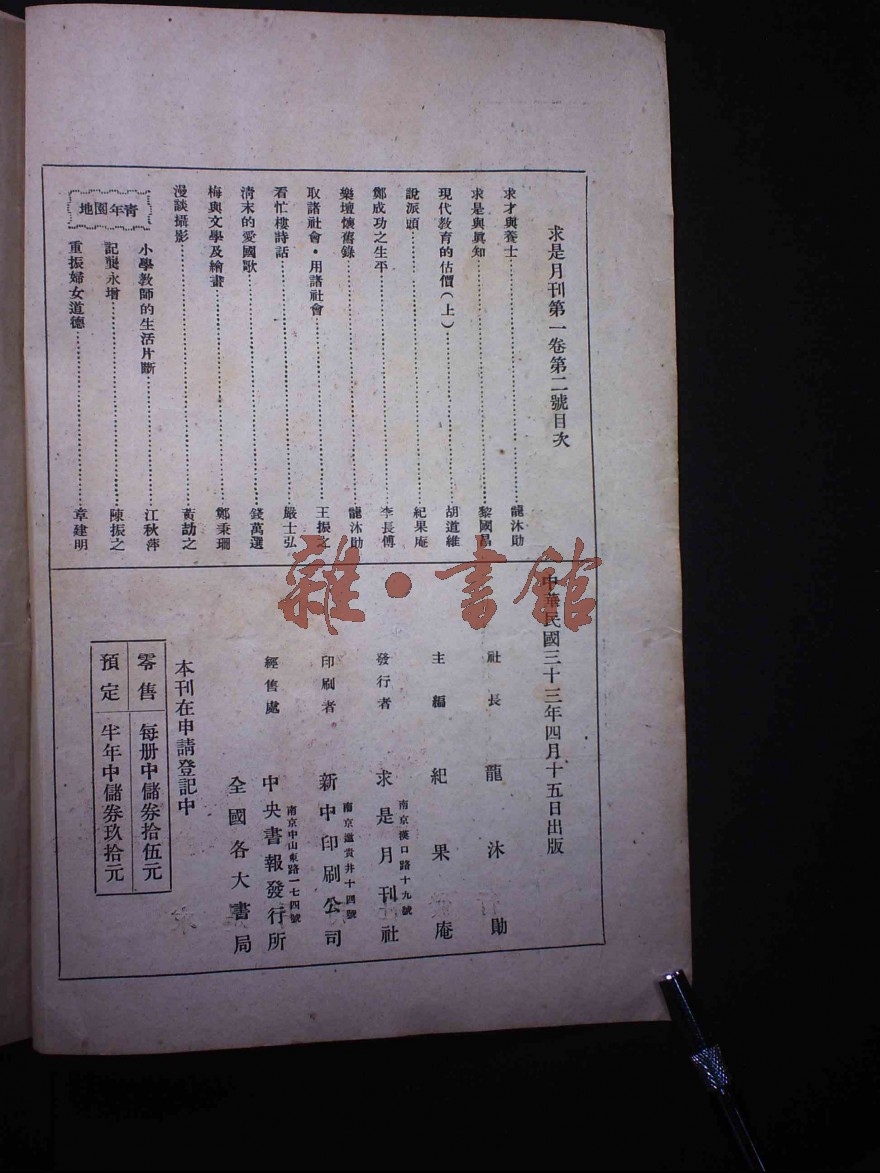 求是月刊第一卷第二號目次
求才與養士 龍沐勛
求是與眞知 黎國昌
現代教育的估價（上） 胡道維
說派頭 紀果庵
鄭成功之生平 李長傅
樂壇懷舊錄 龍沐勛
取諸社會・用諸社會 王振之
看忙樓詩話 嚴士弘
淸末的愛國歌 錢萬選
梅與文學及繪畫 鄭秉珊
漫談攝影 黃劼之
靑年園地
小學教師的生活片斷 江秋萍
記龔永增 陳振之
重振婦女道德 章建明
中華民國三十三年四月十五日出版
社長 龍沐勛
主編 紀果庵
南京漢口路十九號
發行者 求是月刊社
南京邀貴井十四號
印刷者 新中印刷公司
南京中山東路一七四號
經售處 中央書報發行所
全國各大書局
本刊在申請登記中
零售 每册中儲券拾伍元
預定 半年中儲券玖拾元
雜・書館